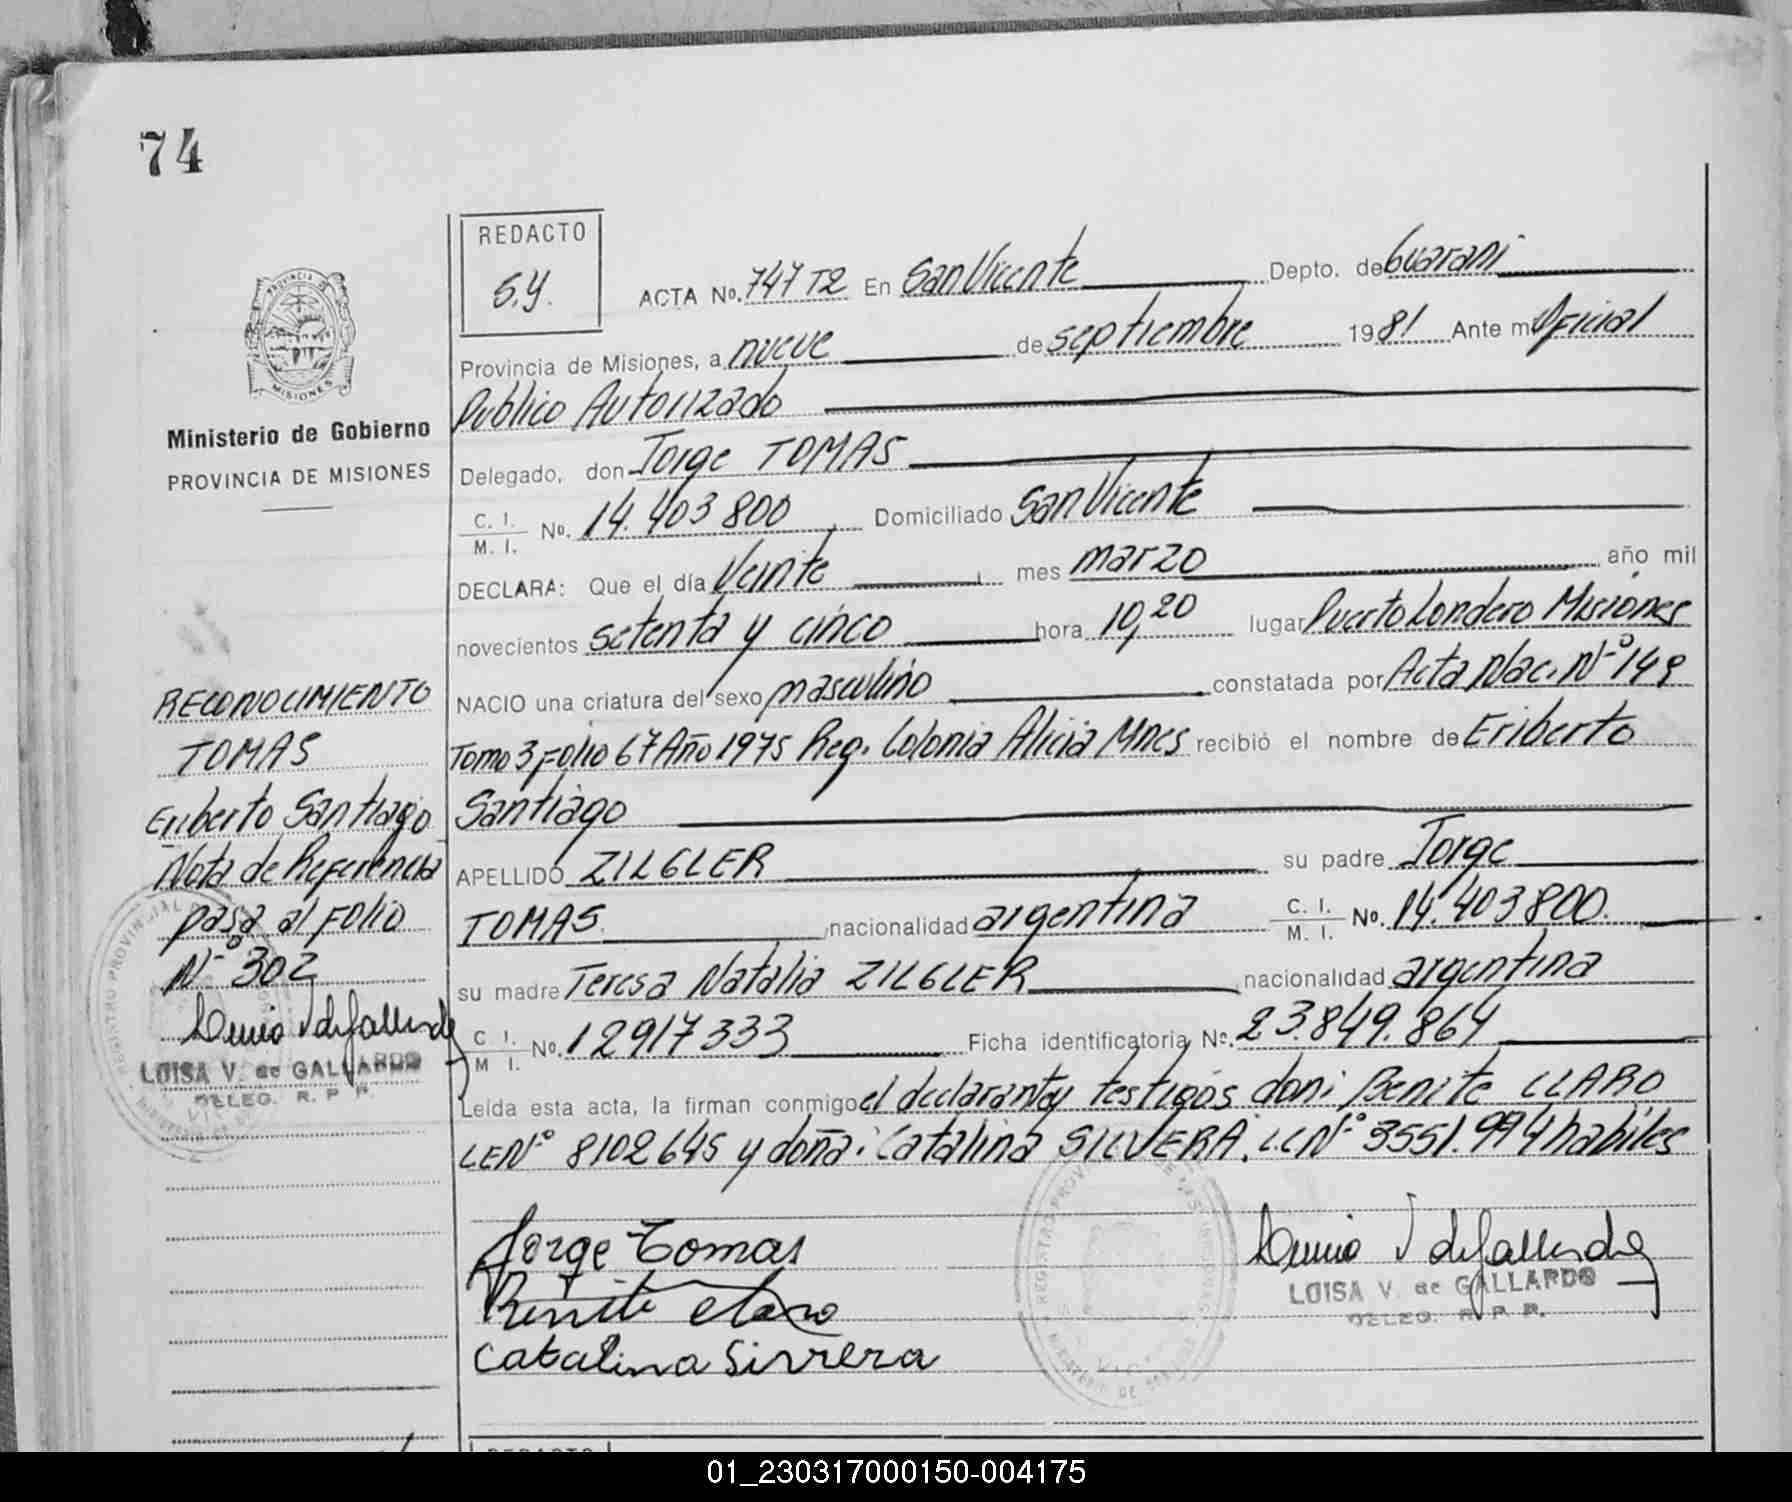 74
REDACTO
S.Y.
ACTA No. 747 T2 En San Vicente Depto. de Guarani
Provincia de Misiones, a nueve de septiembre 1981 Ante mi Oficial
Publico Autorizado
Delegado, don Jorge TOMAS
C. I. / M. I. No. 14.403 800 Domiciliado San Vicente
DECLARA: Que el día Veinte mes marzo año mil
novecientos setenta y cinco hora 10,20 lugar Puerto Londero Misiones
NACIO una criatura del sexo masculino constatada por Acta Nac. Nº 149
Tomo 3 Folio 67 Año 1975 Reg. Colonia Alicia Mnes recibió el nombre de Eriberto
Santiago
APELLIDO ZILGLER su padre Jorge
TOMAS. nacionalidad argentina C. I. / M. I. No. 14.403800.
su madre Teresa Natalia ZILGLER nacionalidad argentina
C. I. / M. I. No. 12917333 Ficha identificatoria No. 23.849.864
Leída esta acta, la firman conmigo el declarante y testigos don: Benite CLARO
LE Nº 8102645 y doña: Catalina SILVERA. L.C Nº 3551.994 habiles
Jorge Tomas
Benite claro
Catalina Sirrera
LUISA V. de GALLARDO
DELEG. R. P. P.
PROVINCIA
MISIONES
Ministerio de Gobierno
PROVINCIA DE MISIONES
RECONOCIMIENTO
TOMAS
Eriberto Santiago
Nota de Referencia
pasa al Folio
Nº 302
LUISA V. de GALLARDO
DELEG. R. P. P.
REDACTO
01_230317000150-004175